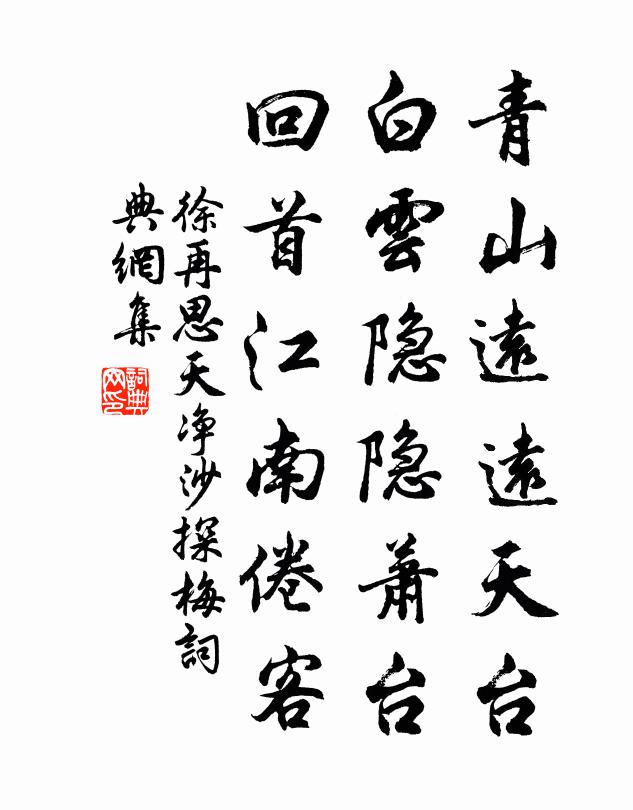 青山遠遠天台
白雲隐隐蕭台
回首江南倦客
徐再思天净沙探梅詞
典網集
詞典
网印